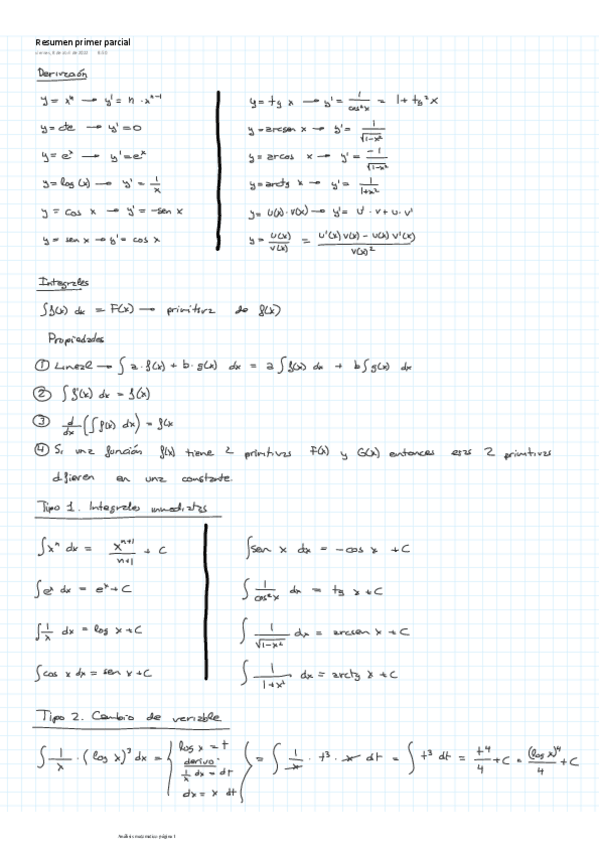 Resumen primer parcial
Derivación
y = xⁿ → y' = n · xⁿ⁻¹
y = cte → y' = 0
y = eˣ → y' = eˣ
y = log (x) → y' = 1/x
y = cos x → y' = -sen x
y = sen x → y' = cos x
y = tg x → y' = 1/cos²x = 1 + tg²x
y = arcsen x → y' = 1/√(1-x²)
y = arcos x → y' = -1/√(1-x²)
y = arctg x → y' = 1/(1+x²)
y = u(x) · v(x) → y' = u' · v + u · v'
y = u(x)/v(x) = (u'(x) v(x) - u(x) v'(x))/v(x)²
Integrales
∫f(x) dx = F(x) → primitiva de f(x)
Propiedades
① Lineal → ∫ a · f(x) + b · g(x) dx = a ∫ f(x) dx + b ∫ g(x) dx
② ∫ f'(x) dx = f(x)
③ d/dx (∫ f(x) dx) = f(x
④ Si una función f(x) tiene 2 primitivas F(x) y G(x) entonces esas 2 primitivas
difieren en una constante.
Tipo 1. Integrales inmediatas
∫xⁿ dx = xⁿ⁺¹/(n+1) + C
∫eˣ dx = eˣ + C
∫1/x dx = log x + C
∫cos x dx = sen x + C
∫sen x dx = -cos x + C
∫ 1/cos²x dx = tg x + C
∫ 1/√(1-x²) dx = arcsen x + C
∫ 1/(1+x²) dx = arctg x + C
Tipo 2. Cambio de variable
∫ 1/x · (log x)³ dx = { log x = t
derivo:
1/x dx = dt
dx = x dt } = ∫ 1/x · t³ · x dt = ∫ t³ dt = t⁴/4 + C = (log x)⁴/4 + C
Análisis matemático página 1